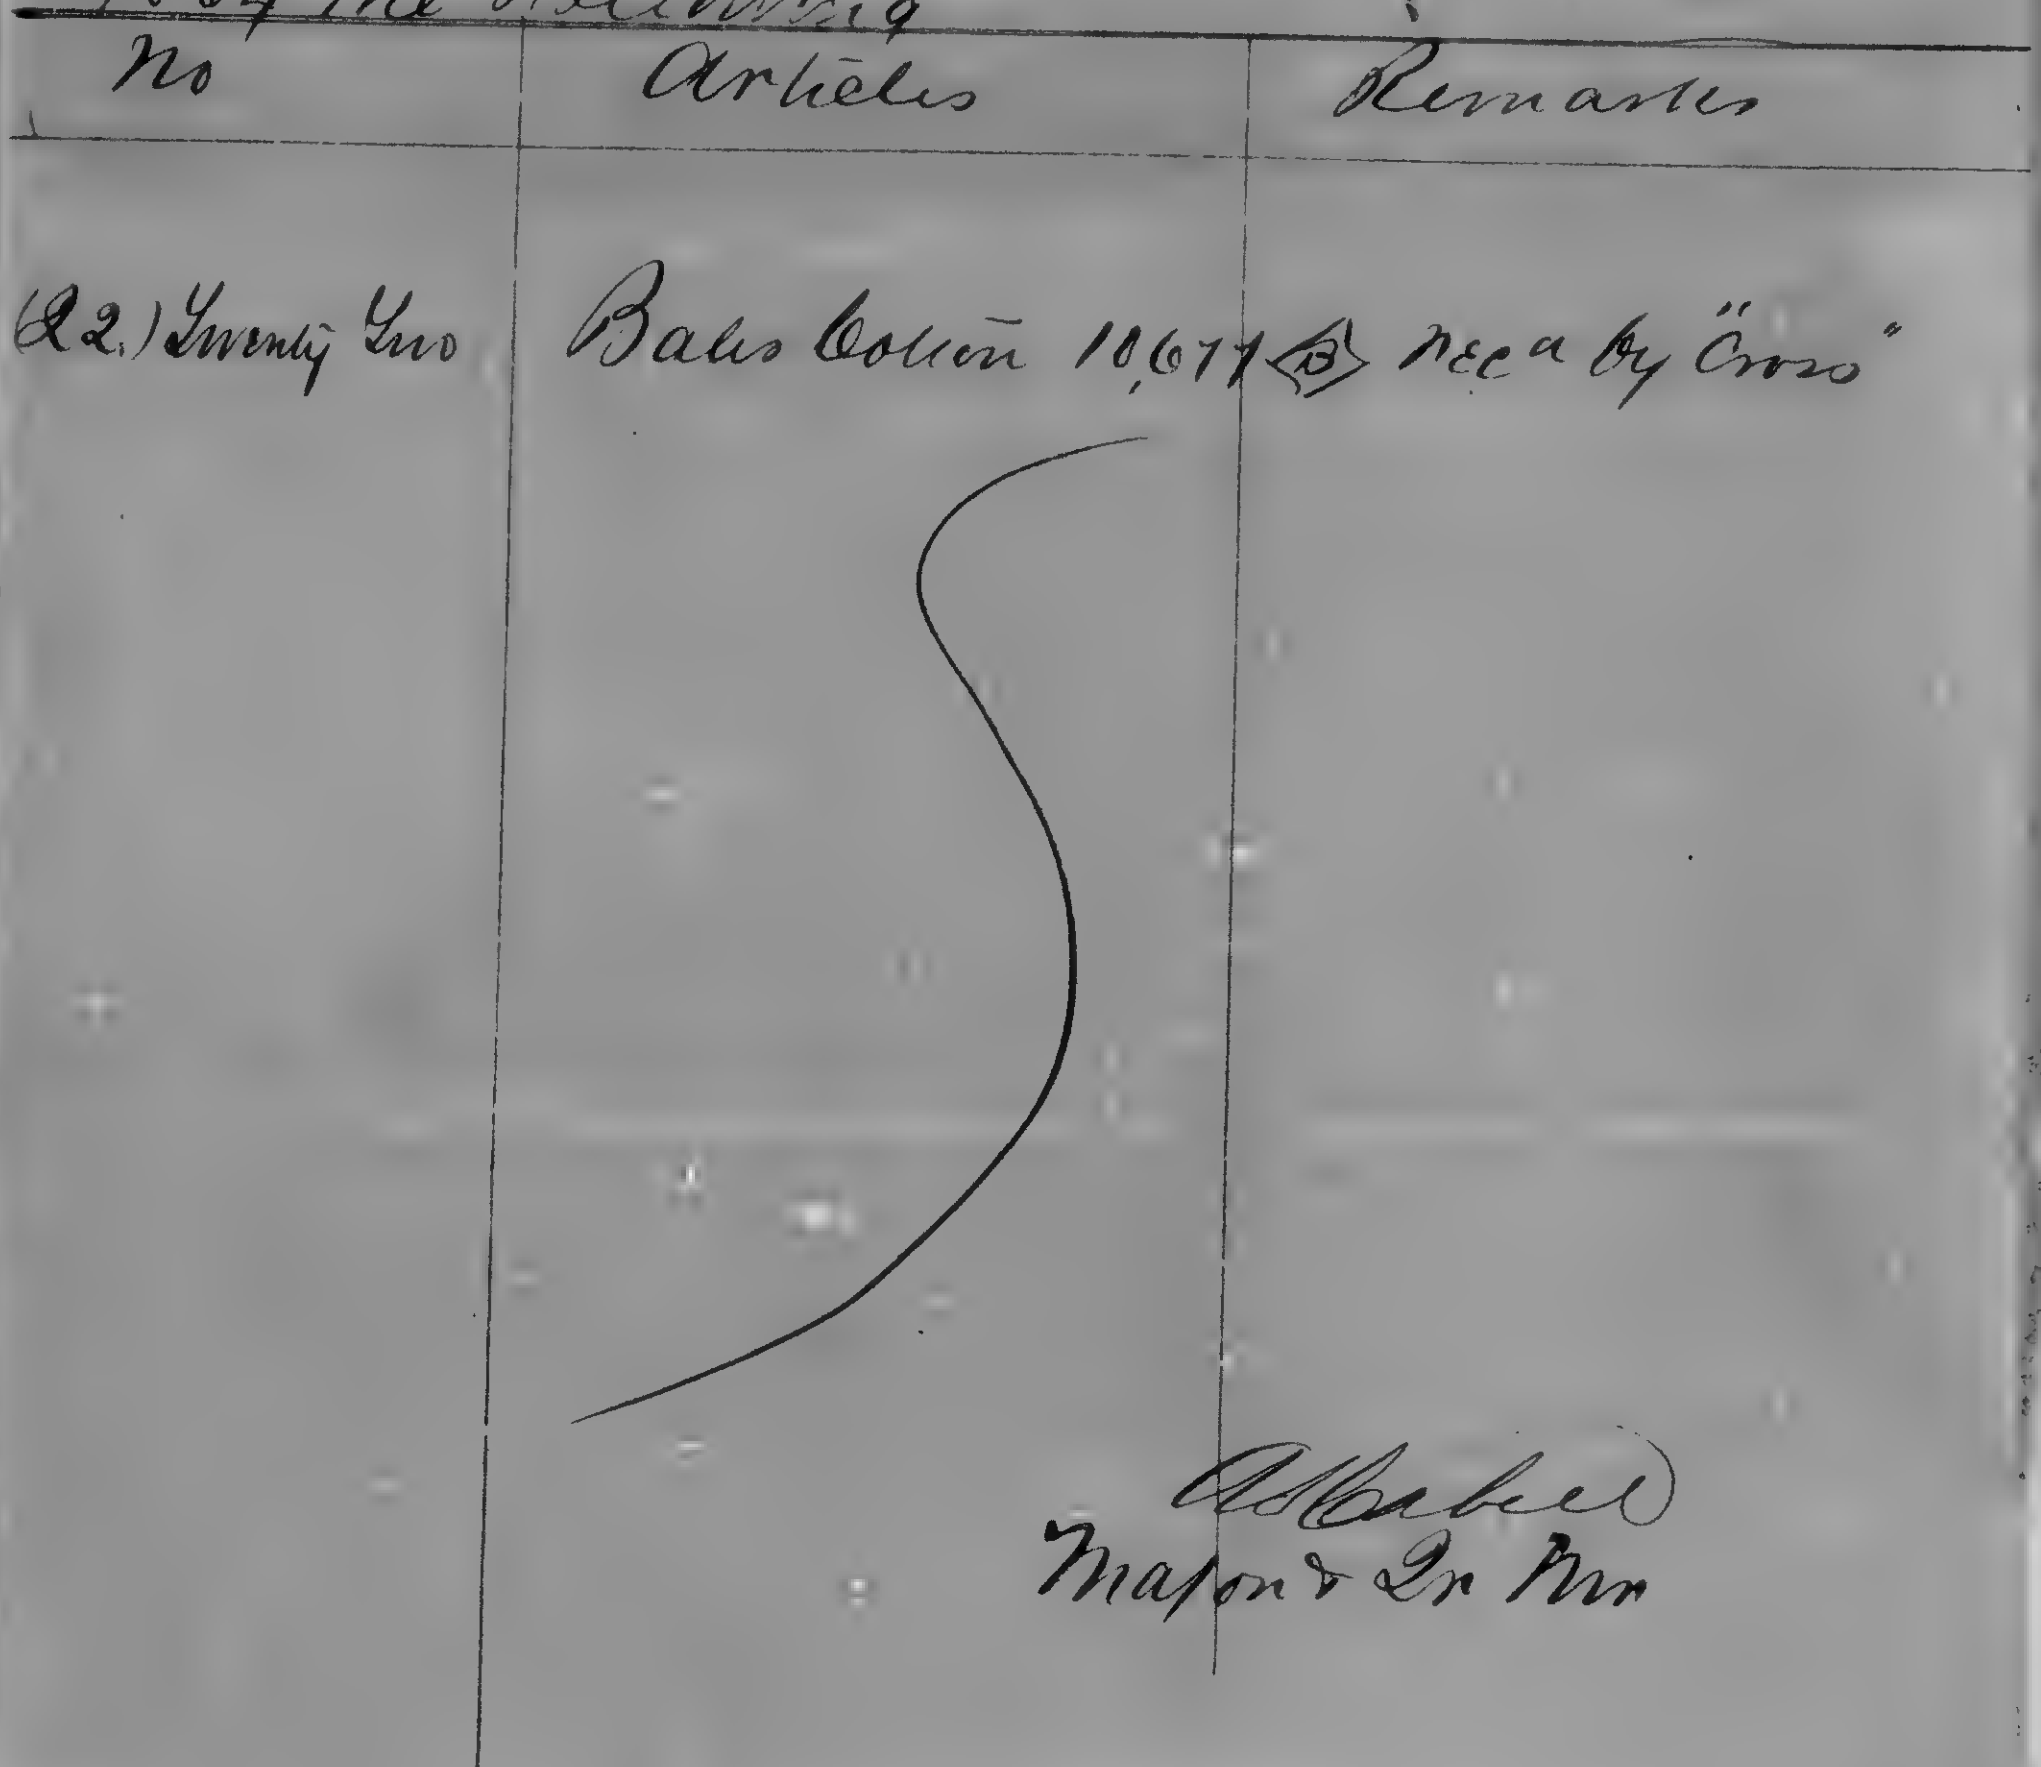 the following
No Articles Remarks
(22.) Twenty Two Bales Cotton 10,677 <B> Rec'd by "Cross"
Major & Qr Mr